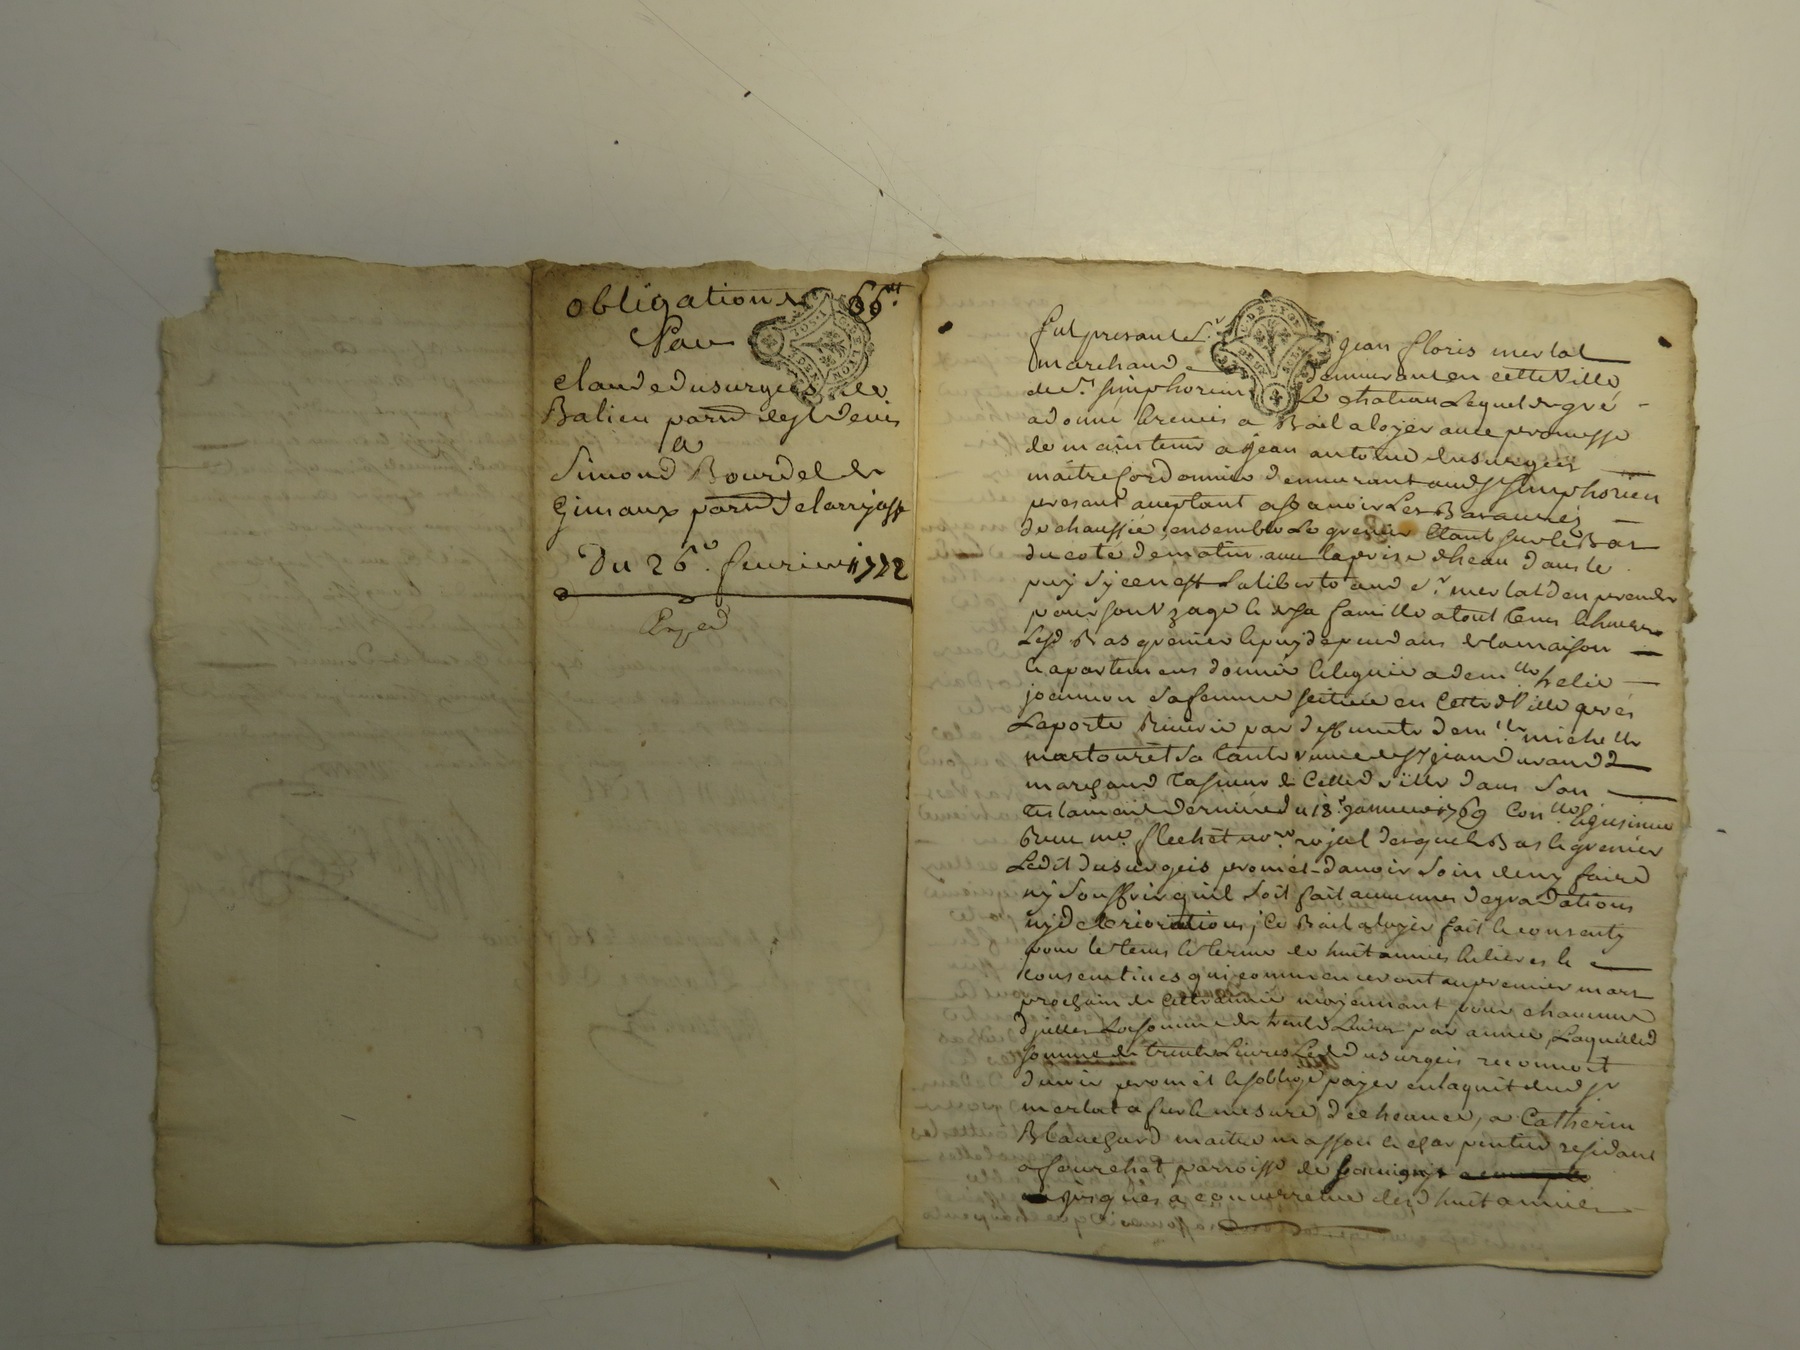 obligation de 66.tt
Par
claude dusurgeis de
Balieu parr.d de st denis
a
Simond Bourdel de
Gimaux parr.d de larrajasse
Du 26.e feurier 1772
Exped
fut presant S.r jean floris merlat
marchand demeurant en cette ville
de s.t simphorien Le chateau Lequel de gré
a donné et remis a Bail a loyer avec promesse
de maintenir a jean antoine dusurgeis
maître Cordonnier demeurant aud st simphorien
present acceptant assavoir Les Bas au rés
de chaussée, ensemble Le grenier Etant sur le Bas
du coté de matin avec la prise d'heau dans le
puy sy ce n'est La liberté aud s.r merlat den prendre
pour son uzage et de sa famille a tout tems et heure
Lesd Bas grenier et puy dependans de la maison
et apartemens donnée et leguée a dem.lle helie
joannon sa femme scituée en Cetted ville prés
Laporte Riverie par deffunte dem.lle michelle
martouret sa tante veuve de sr jean durand
marchand Tasneur de Cetted ville dans Son
testament dernier du 18.e janvier 1769 Con.llé et
Receu m.e flechet no.re royal desquels Bas et grenier
Ledit dusurgeis promet d'avoir soin de ny faire
ny Souffrir quil soit fait aucunes degradations
ny deteriorations; Ce Bail a loyer fait et consenty
pour le tems et terme de huit années entieres et
consecutives qui commenceront au premier mars
prochain de cette année moyennant pour chacune
d'jcelles La somme de trente Livres par année, Laquelled
somme de trente Livres Led dusurgeis reconnoit
devoir promet et soblige payer en laquit dud sr
merlat a fur et mesure d'echeance, a Catherin
Blanchard maitre masson et charpentier residant
a fourchet parroisse de
jusques a concurrence desd huit années